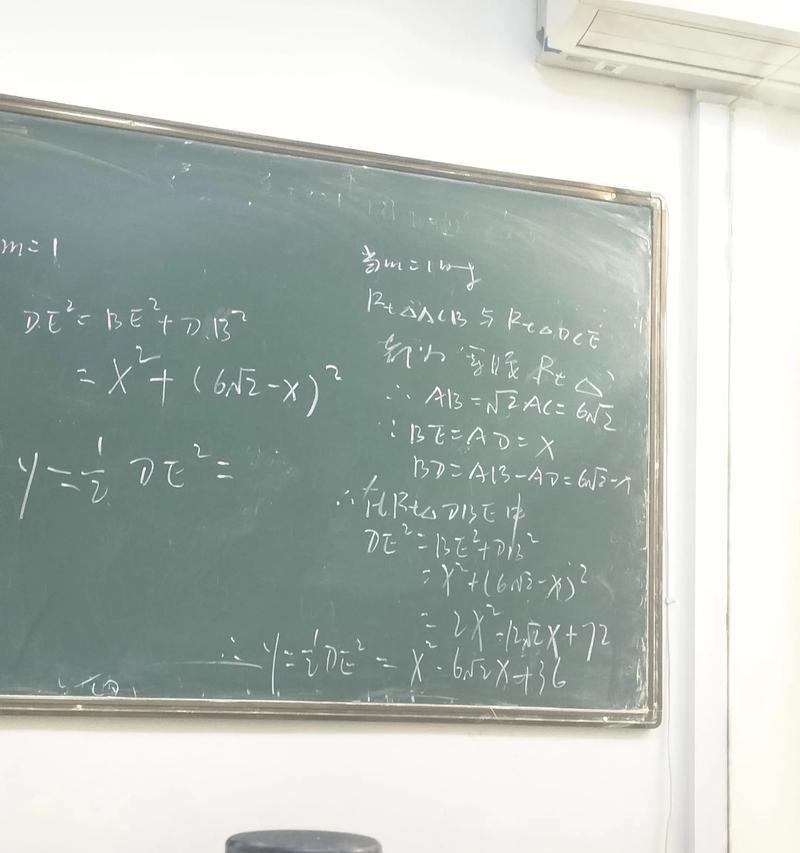 m=1
DE²=BE²+DB²
=X²+(6√2-X)²
y=½DE²=
当m=1时
Rt△ACB与Rt△DCE
都为等腰Rt△
∴AB=√2AC=6√2
∵BE=AD=X
BD=AB-AD=6√2-X
∴在Rt△DBE中
DE²=BE²+DB²
=X²+(6√2-X)²
=2X²-12√2X+72
∴y=½DE²=X²-6√2X+36